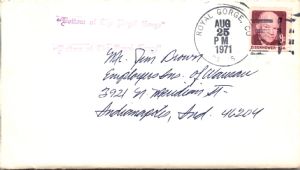 "Bottom of the Royal Gorge"
ROYAL GORGE, CO
AUG
25
PM
1971
EISENHOWER · USA
Mr. Jim Brown
Employers Ins. of Wausau
3921 N Meridian St.
Indianapolis, Ind. 46204